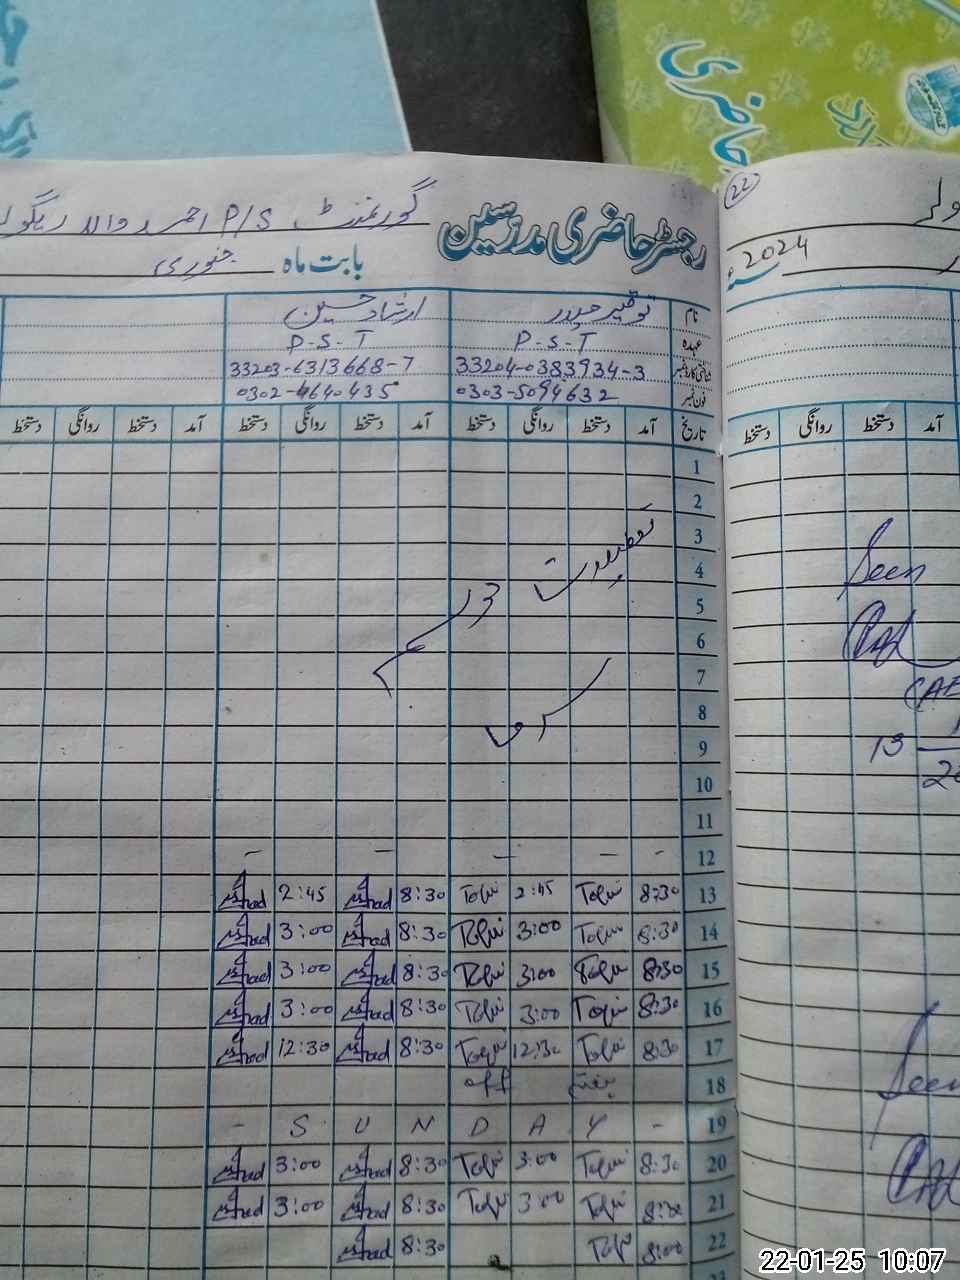 حاضری
22
رجسٹر حاضری مدرسین گورنمنٹ P/S احمد والہ
بابت ماہ جنوری
2024ء
نام توقیر حیدر ارشاد حسین
عہدہ P-S-T P-S-T
شناختی کارڈ نمبر 33204-0383934-3 33203-6313668-7
فون نمبر 0303-5094632 0302-4640435
تاریخ آمد دستخط روانگی دستخط آمد دستخط روانگی دستخط آمد دستخط روانگی دستخط
آمد دستخط روانگی دستخط
1
2
3
4
5
6
7
8
9
10
11
تعطیلات
موسم
سرما
12 - - - - -
13 8:30 2:45 8:30 Irshad 2:45 Irshad
14 8:30 3:00 8:30 Irshad 3:00 Irshad
15 8:30 3:00 8:30 Irshad 3:00 Irshad
16 8:30 3:00 8:30 Irshad 3:00 Irshad
17 8:30 12:30 8:30 Irshad 12:30 Irshad
18 ہفتہ off
19 - S U N D A Y -
20 8:30 3:00 8:30 Irshad 3:00 Irshad
21 8:30 3:00 8:30 Irshad 3:00 Irshad
22 8:00 8:30 Irshad
Seen
13
Seen
22-01-25 10:07